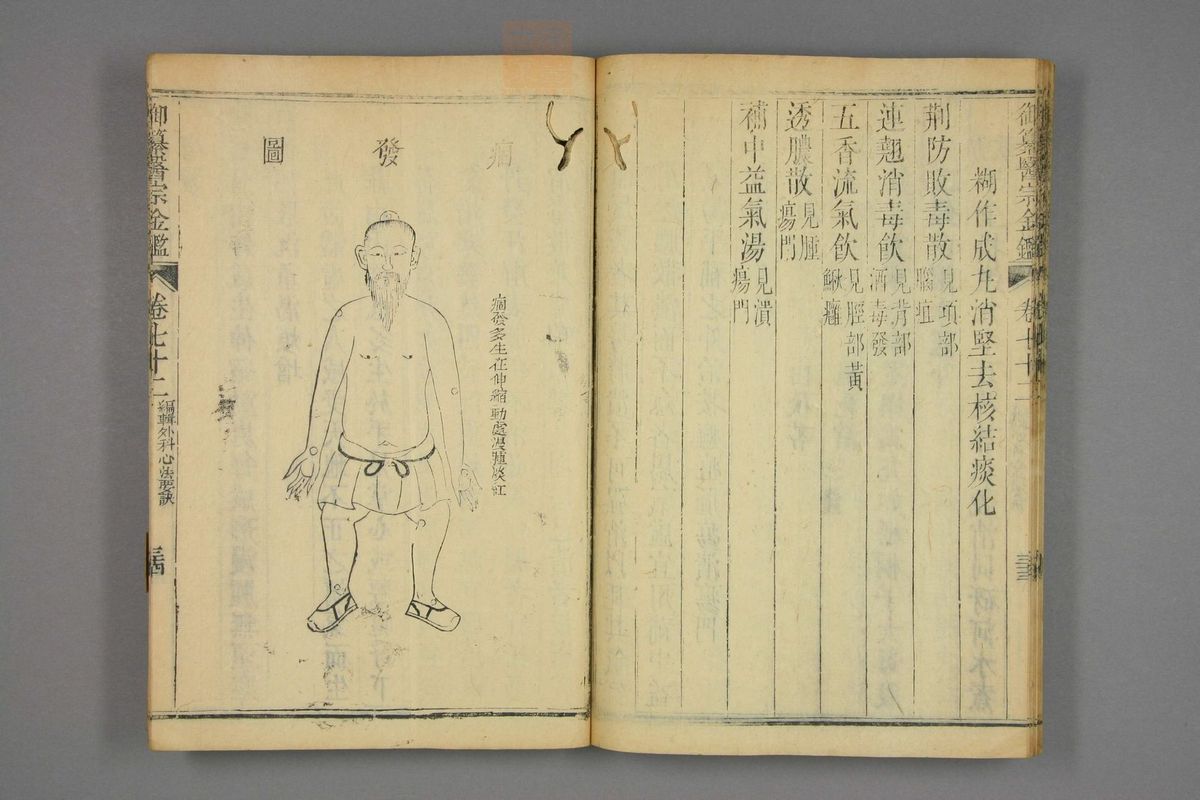 御纂醫宗金鑑 卷七十二 三三
糊作成丸消堅去核結痰化
荆防敗毒散 見項部
腦疽
連翹消毒飲 見背部
酒毒發
五香流氣飲 見脛部黃
鰍癰
透膿散 見腫
瘍門
補中益氣湯 見潰
瘍門
痼發圖
痼發多生在伸縮動處漫腫淡紅
御纂醫宗金鑑 卷七十二 編輯外科心法要訣 三四